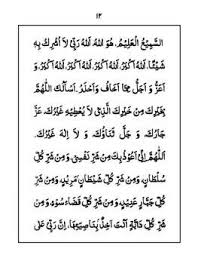 ١٣
السَّمِيْعُ الْعَلِيْمُ، هُوَ اللهُ، اَللهُ رَبِّيْ لَا اُشْرِكُ بِهِ
شَيْئًا، اَللهُ اَكْبَرُ، اَللهُ اَكْبَرُ، اَللهُ اَكْبَرُ، اَللهُ اَكْبَرُ، وَ
اَعَزُّ وَ اَجَلُّ مِمَّا اَخَافُ وَ اَحْذَرُ، اَسْأَلُكَ اللّٰهُمَّ
بِخَيْرِكَ مِنْ خَيْرِكَ الَّذِيْ لَا يُعْطِيْهِ غَيْرُكَ، عَزَّ
جَارُكَ، وَ جَلَّ ثَنَاؤُكَ، وَ لَا اِلٰهَ غَيْرُكَ،
اَللّٰهُمَّ اِنِّيْ اَعُوْذُ بِكَ مِنْ شَرِّ نَفْسِيْ، وَ مِنْ شَرِّ كُلِّ
سُلْطَانٍ، وَ مِنْ شَرِّ كُلِّ شَيْطَانٍ مَرِيْدٍ، وَ مِنْ شَرِّ
كُلِّ جَبَّارٍ عَنِيْدٍ، وَ مِنْ شَرِّ كُلِّ قَضَاءِ سُوْءٍ، وَ مِنْ
شَرِّ كُلِّ دَابَّةٍ اَنْتَ اٰخِذٌ بِنَاصِيَتِهَا، اِنَّ رَبِّيْ عَلٰى